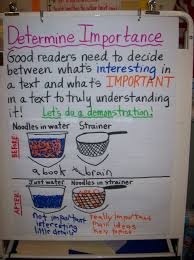 Determine Importance
Good readers need to decide
between what's interesting in
a text and what's IMPORTANT
in a text to truly understanding
it! Let's do a demonstration!
Noodles in water Strainer
BEFORE
a book brain
Just water Noodles in strainer
AFTER
not important really important
interesting main ideas
little details key topics